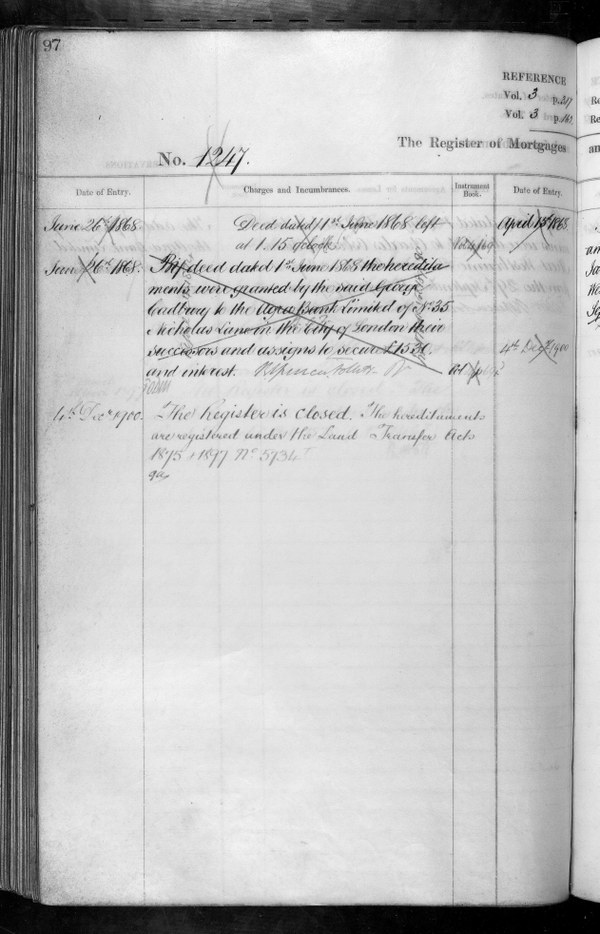 97
REFERENCE
Vol. 3 p.
Vol. 3 p.
The Register of Mortgages
No. 1247.
Date of Entry.
Charges and Incumbrances.
Instrument Book.
Date of Entry.
June 26th 1868.
Deed dated 1st June 1868 left
April 15th 1868
at 1.15 oclock
June 26th 1868.
By deed dated 1st June 1868 the heredita
ments were granted by the said George
Cadbury to the Agra Bank Limited of No. 35
Nicholas Lane in the City of London their
successors and assigns to secure £1530.
4th Decr 1900
and interest.
4th Decr 1900.
The Register is closed. The hereditaments
are registered under the Land Transfer Acts
1875 & 1897 No 5934